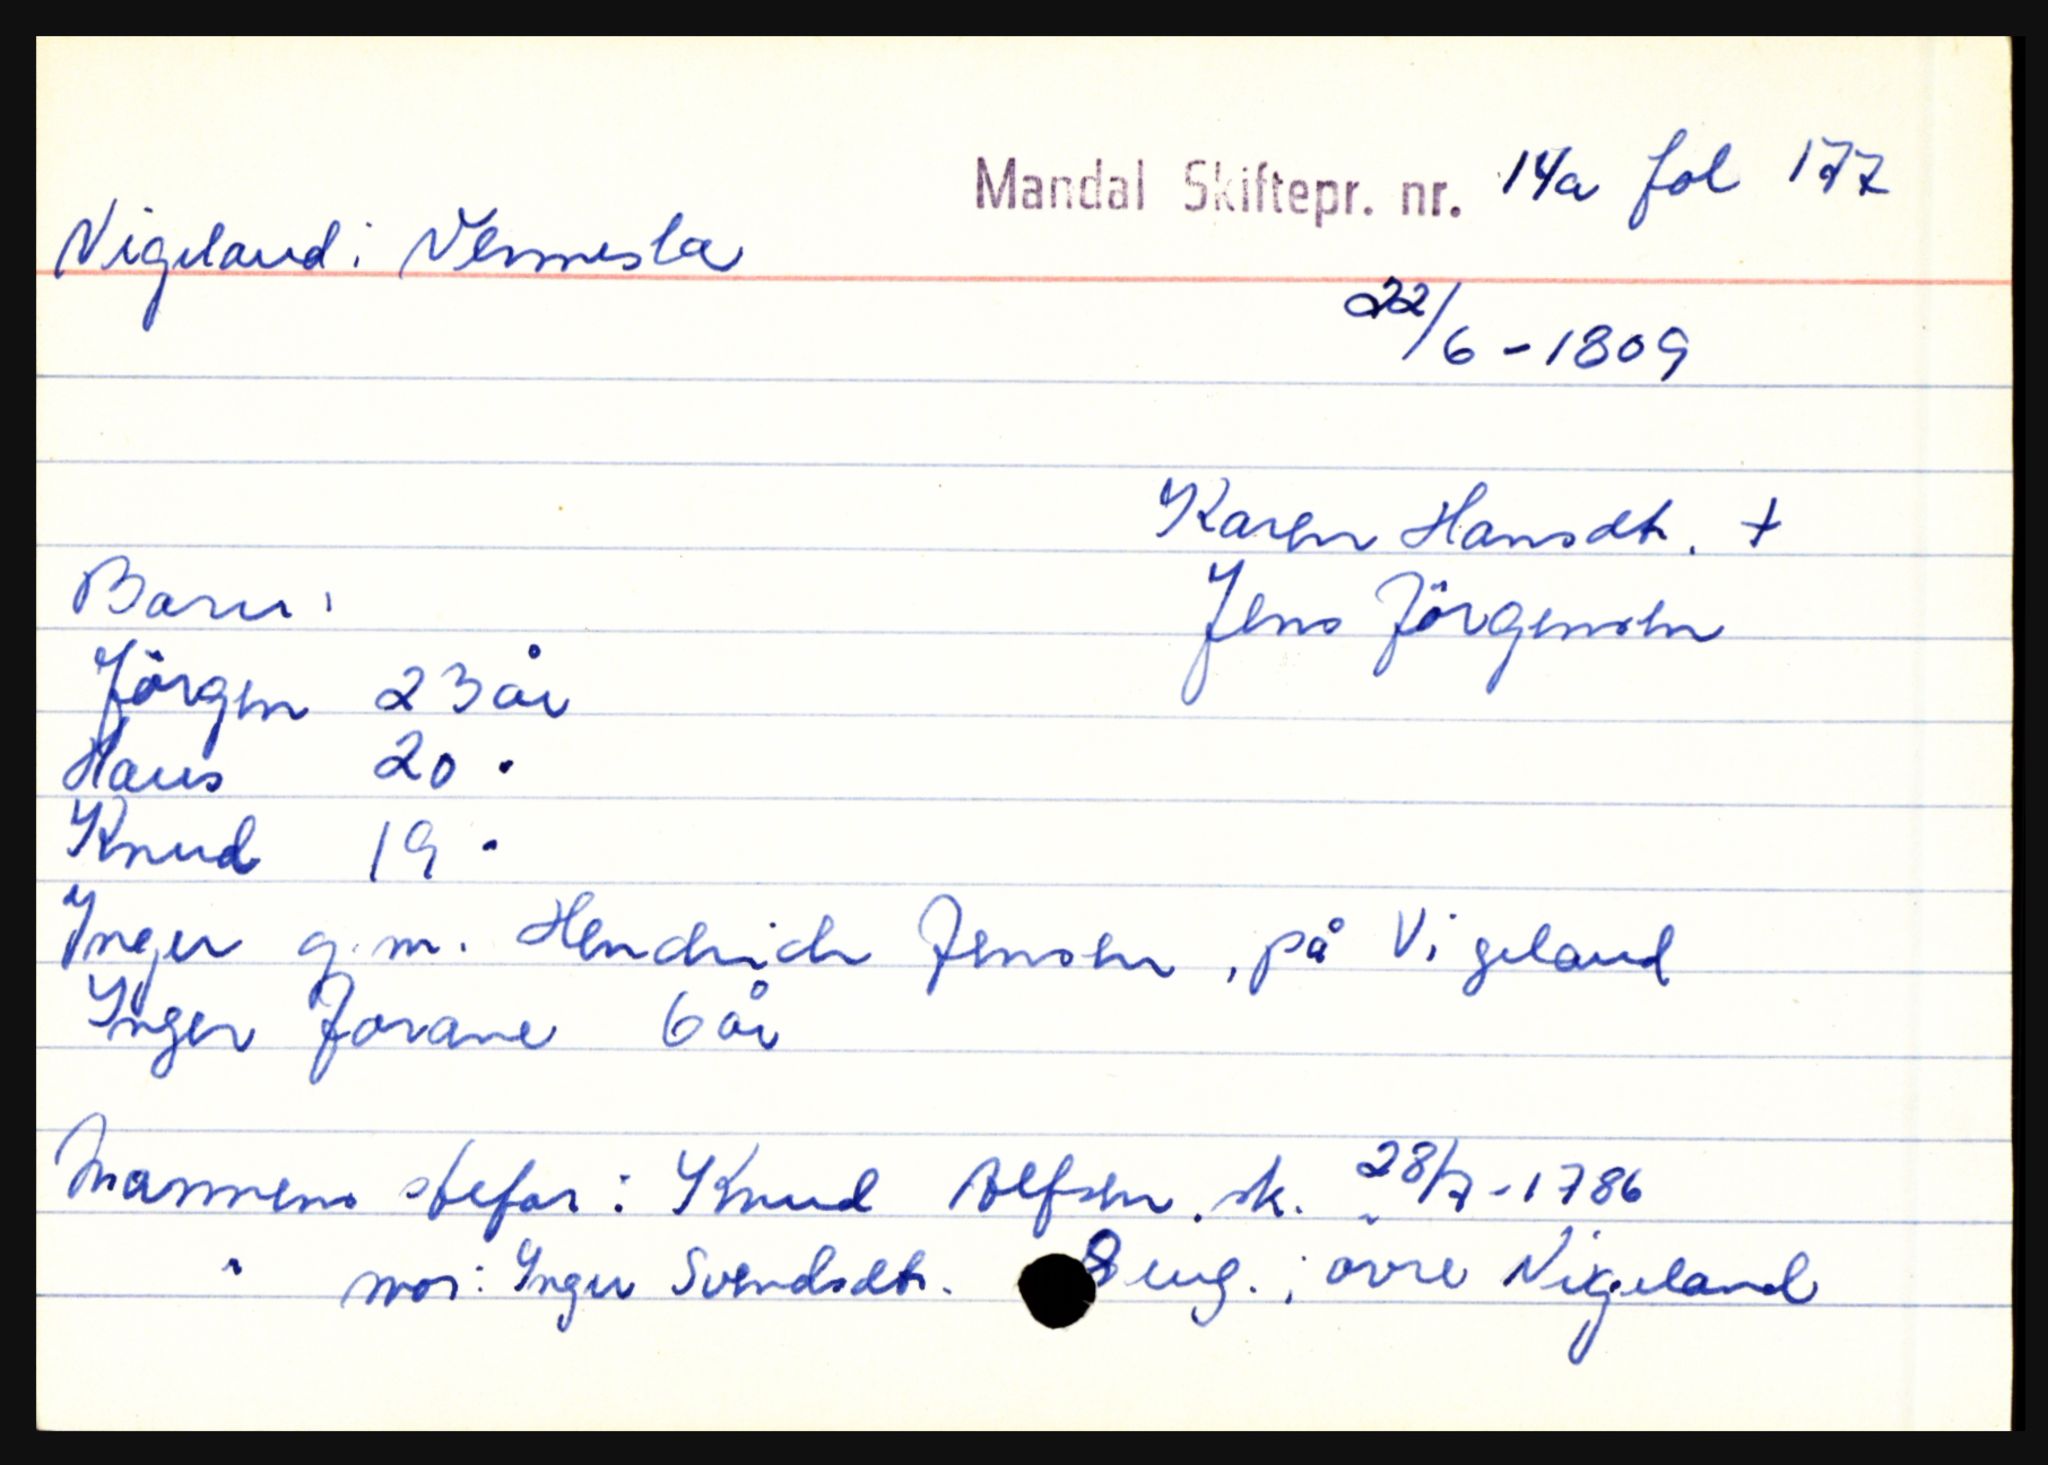 Mandal Skiftepr. nr. 14a fol 177
Vigeland i Vennesla
22/6-1809
Karen Hansdt. +
Barn: Jens Jörgensen
Jörgen 23 år
Hans 20 "
Knud 19 "
Inger g.m. Hendrich Jensen, på Vigeland
Inger Jorane 6 år
Mannens stefar: Knud Alfsen. sk. 28/7-1786
" mor: Inger Svendsdt. øvre Vigeland